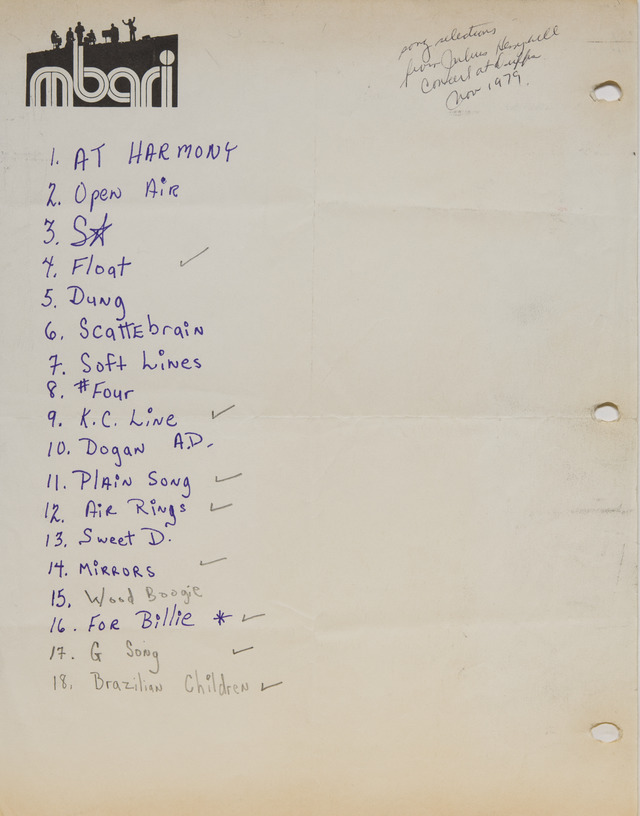 mbari
song selections
from Julius Hemphill
Concert at
Nov 1979.
1. AT HARMONY
2. Open Air
3. S☆
4. Float ✓
5. Dung
6. ScattEbrain
7. Soft Lines
8. #Four
9. K.C. Line ✓
10. Dogon A.D.
11. Plain Song ✓
12. Air Rings ✓
13. Sweet D.
14. MIRRORS ✓
15. Wood Boogie
16. FOR Billie * ✓
17. G Song ✓
18. Brazilian Children ✓